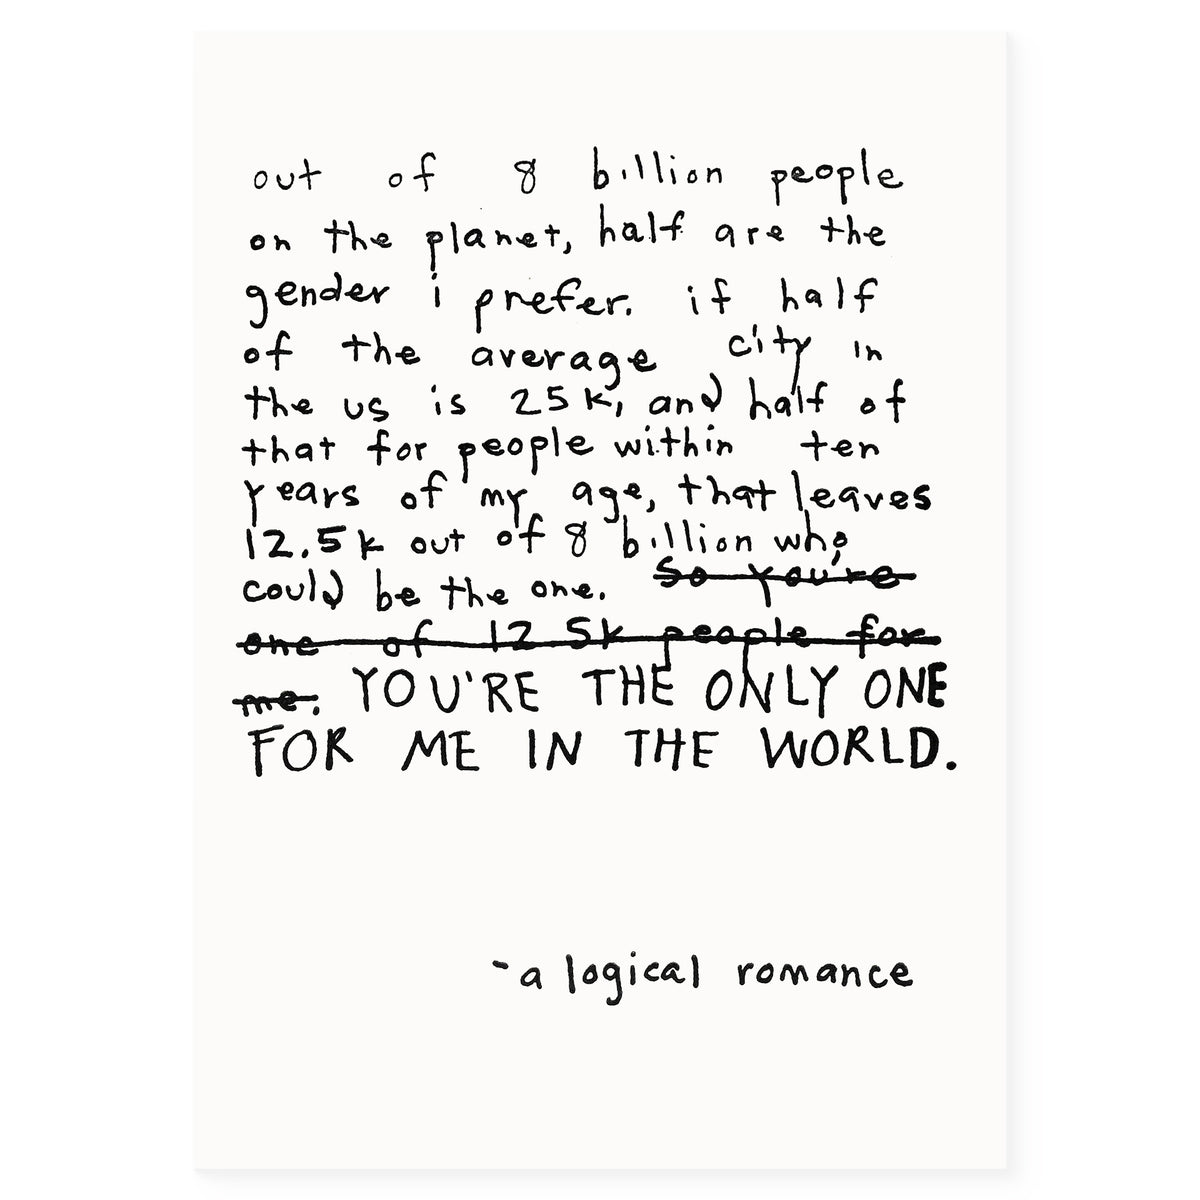 out of 8 billion people
on the planet, half are the
gender i prefer. if half
of the average city in
the us is 25k, and half of
that for people within ten
years of my age, that leaves
12.5k out of 8 billion who
could be the one. So you're
one of 12.5k people for
me. YOU'RE THE ONLY ONE
FOR ME IN THE WORLD.
-a logical romance